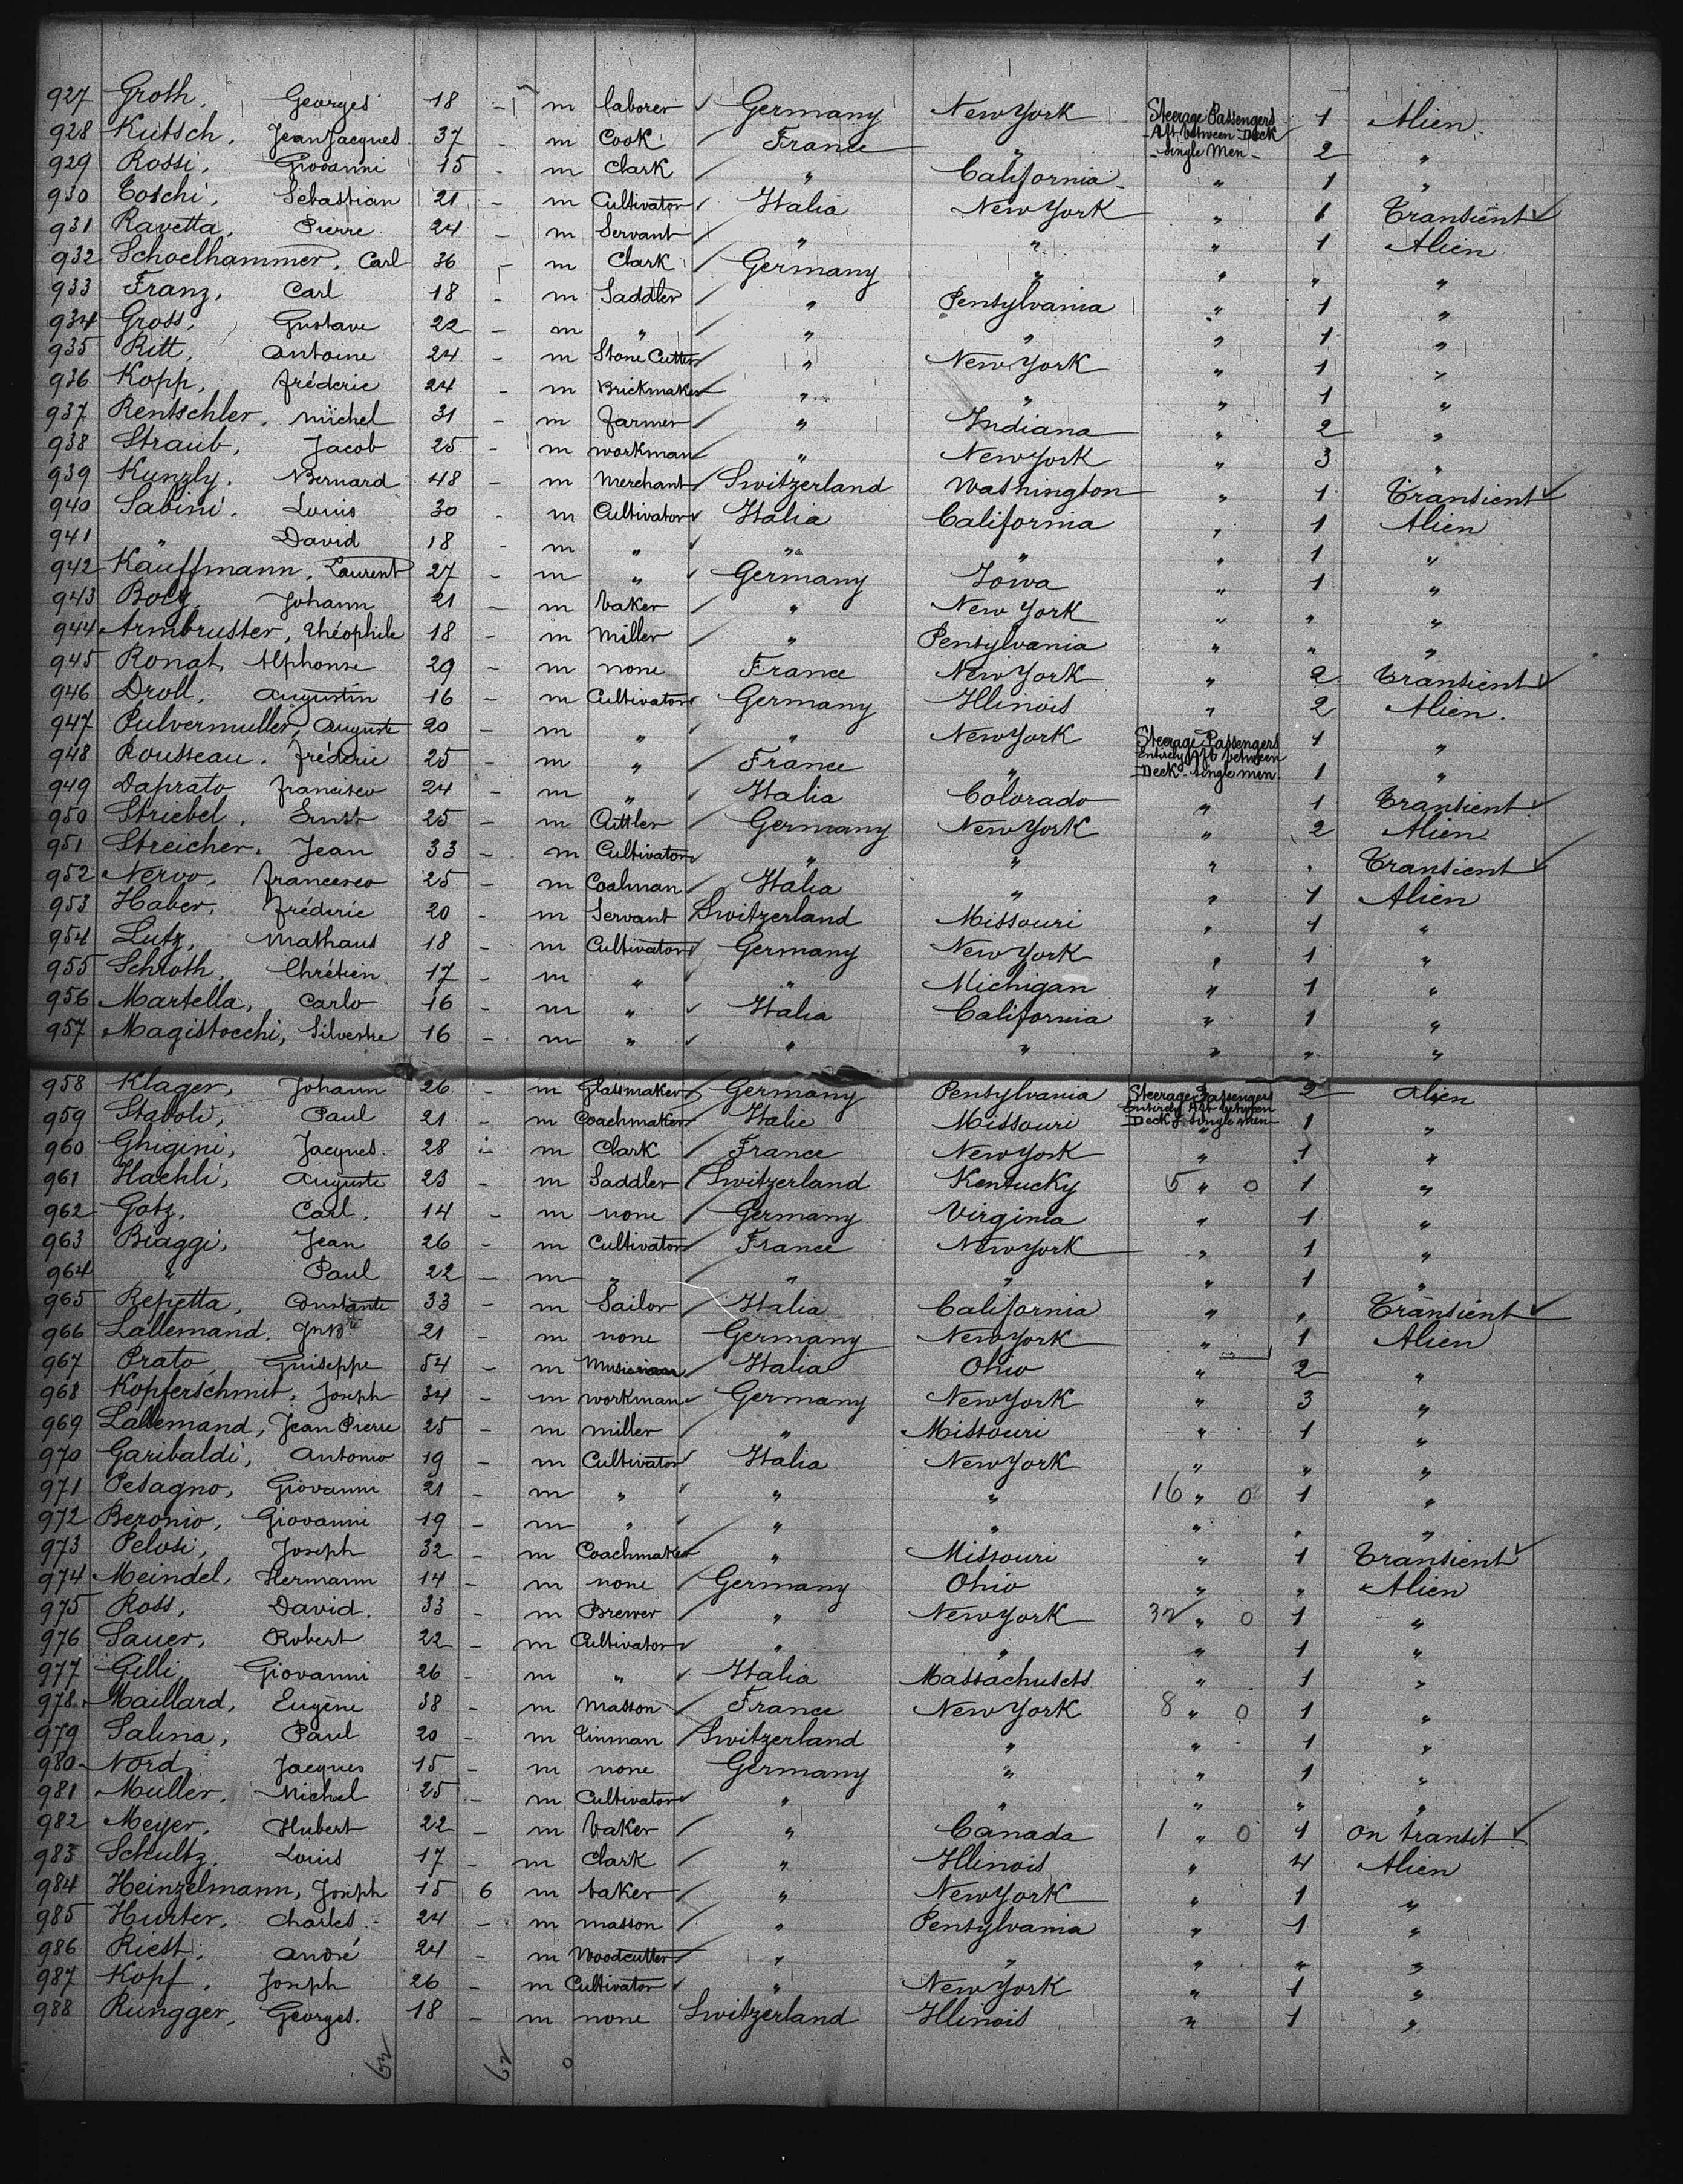 927 Groth, Georges 18 - m laborer Germany New York Steerage Passengers Aft between Deck - Single Men - 1 Alien
928 Kutsch, Jean Jacques 37 - m Cook France " 2 "
929 Rossi, Giovanni 15 - m Clark " California " 1 "
930 Toschi, Sebastian 21 - m Cultivator Italia New York " 1 Transient
931 Ravetta, Pierre 24 - m Servant " " " 1 Alien
932 Schoelhammer, Carl 36 - m Clark Germany " " " "
933 Franz, Carl 18 - m Saddler " Pensylvania " 1 "
934 Gross, Gustave 22 - m " " " " 1 "
935 Ritt, Antoine 24 - m Stone Cutter " New York " 1 "
936 Kopp, Fréderic 24 - m Brickmaker " " " 1 "
937 Rentschler, Michel 31 - m farmer " Indiana " 2 "
938 Straub, Jacob 25 - m workman " New York " 3 "
939 Kunzly, Bernard 48 - m Merchant Switzerland Washington " 1 Transient
940 Sabini, Louis 30 - m Cultivator Italia California " 1 Alien
941 " David 18 - m " " " " 1 "
942 Kauffmann, Laurent 27 - m " Germany Iowa " 1 "
943 Johann 21 - m baker " New York " " "
944 Armbruster, Théophile 18 - m Miller " Pensylvania " " "
945 Ronat, Alphonse 29 - m none France New York " 2 Transient
946 Droll, Augustin 16 - m Cultivator Germany Illinois " 2 Alien.
947 Pulvermuller, Auguste 20 - m " " New York Steerage Passengers Entirely Aft between Deck - Single men. 1 "
948 Rousseau, Fréderic 25 - m " France " 1 "
949 Daprato Francisco 24 - m " Italia Colorado " 1 Transient
950 Striebel, Ernst 25 - m Cuttler Germany New York " 2 Alien
951 Streicher, Jean 33 - m Cultivator " " " " Transient
952 Nervo, Francesco 25 - m Coalman Italia " " 1 Alien
953 Haber, Fréderic 20 - m Servant Switzerland Missouri " 1 "
954 Lutz, Mathaus 18 - m Cultivator Germany New York " 1 "
955 Schroth, Chrétien 17 - m " " Michigan " 1 "
956 Martella, Carlo 16 - m " Italia California " 1 "
957 Magistocchi, Silvestre 16 - m " " " " " "
958 Klager, Johann 26 - m Glassmaker Germany Pensylvania Steerage Passengers Entirely Aft between Deck & Single men 2 Alien
959 Staboli, Paul 21 - m Coachmaker Italie Missouri " 1 "
960 Ghigini, Jacques. 28 - m Clark France New York " 1 "
961 Haehli, Auguste 23 - m Saddler Switzerland Kentucky 5 " 0 1 "
962 Gotz, Carl. 14 - m none Germany Virginia " 1 "
963 Biaggi, Jean 26 - m Cultivator France New York " 1 "
964 " Paul 22 - m " " " " 1 "
965 Repetta, Constante 33 - m Sailor Italia California " " Transient
966 Lallemand, 21 - m none Germany New York " 1 Alien
967 Prato, Guiseppe 54 - m Musician Italia Ohio " 2 "
968 Kopferschmit, Joseph 34 - m workman Germany New York " 3 "
969 Lallemand, Jean Pierre 25 - m miller " Missouri " 1 "
970 Garibaldi, Antonio 19 - m Cultivator Italia New York " " "
971 Pesagno, Giovanni 21 - m " " " 16 " 0 1 "
972 Beronio, Giovanni 19 - m " " " " " "
973 Pelosi, Joseph 32 - m Coachmaker " Missouri " 1 Transient
974 Meindel, Hermann 14 - m none Germany Ohio " " Alien
975 Ross, David. 33 - m Brewer " New York 32 " 0 1 "
976 Sauer, Robert 22 - m Cultivator " " " 1 "
977 Gilli, Giovanni 26 - m " Italia Massachusets " 1 "
978 Maillard, Eugène 38 - m Masson France New York 8 " 0 1 "
979 Salina, Paul 20 - m Tinman Switzerland " " 1 "
980 Nord, Jacques 15 - m none Germany " " 1 "
981 Muller, Michel 25 - m Cultivator " " " " "
982 Meyer, Hubert 22 - m baker " Canada 1 " 0 1 on transit
983 Schultz, Louis 17 - m Clark " Illinois " 4 Alien
984 Heinzelmann, Joseph 15 6 m baker " New York " 1 "
985 Hurter, Charles 24 - m masson " Pensylvania " 1 "
986 Riest, André 24 - m Woodcutter " " " " "
987 Kopf, Joseph 26 - m Cultivator " New York " 1 "
988 Rungger, Georges. 18 - m none Switzerland Illinois " 1 "
62 62 0